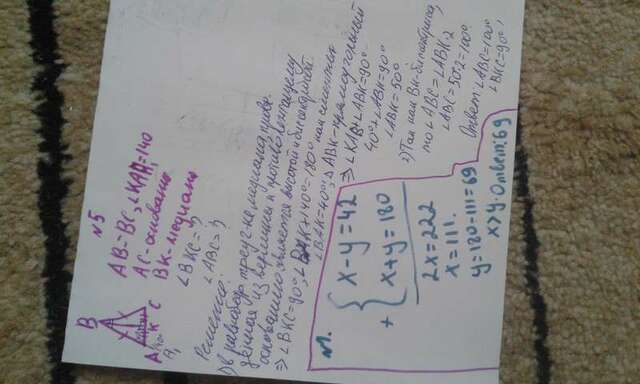 N5
AB=BC,
=140
AC-основание
BK-медиана
B
A
K C
Решение:
∠BKC=?
∠ABC=?
1) В равнобедр. треуг-ке медиана, прове-
денная из вершины к противолежащему
основанию является высотой и биссектрисой.
⇒ ∠BKC=90°, ∠BAK+140=180° как смежные
∠BAK=40°, △ABK-прямоугольный
⇒ ∠KAB+∠ABK=90°
40°+∠ABK=90°
∠ABK=50°
2) Так как BK-биссектриса,
то ∠ABC=∠ABK·2
∠ABC=50·2=100°
Ответ: ∠ABC=100°
∠BKC=90°
N1.
x-y=42
+
x+y=180
2x=222
x=111.
y=180-111=69
x>y. Ответ: 69